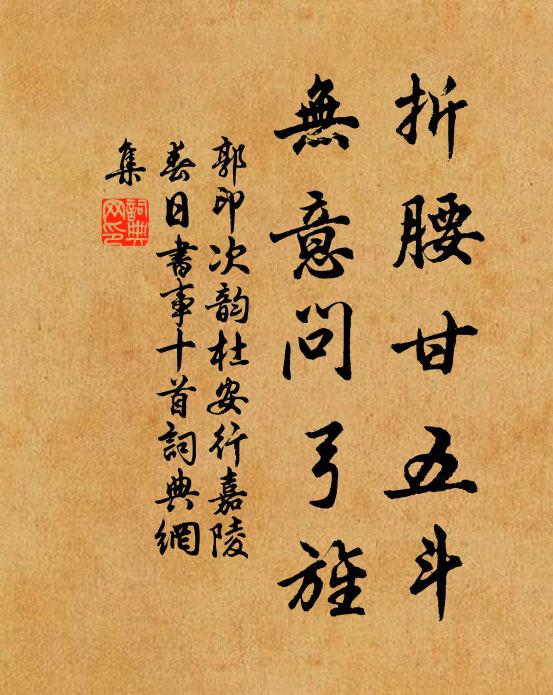 折腰甘五斗
無意問弓旌
郭印次韵杜安行嘉陵
春日書事十首詞典網
集
詞典網印